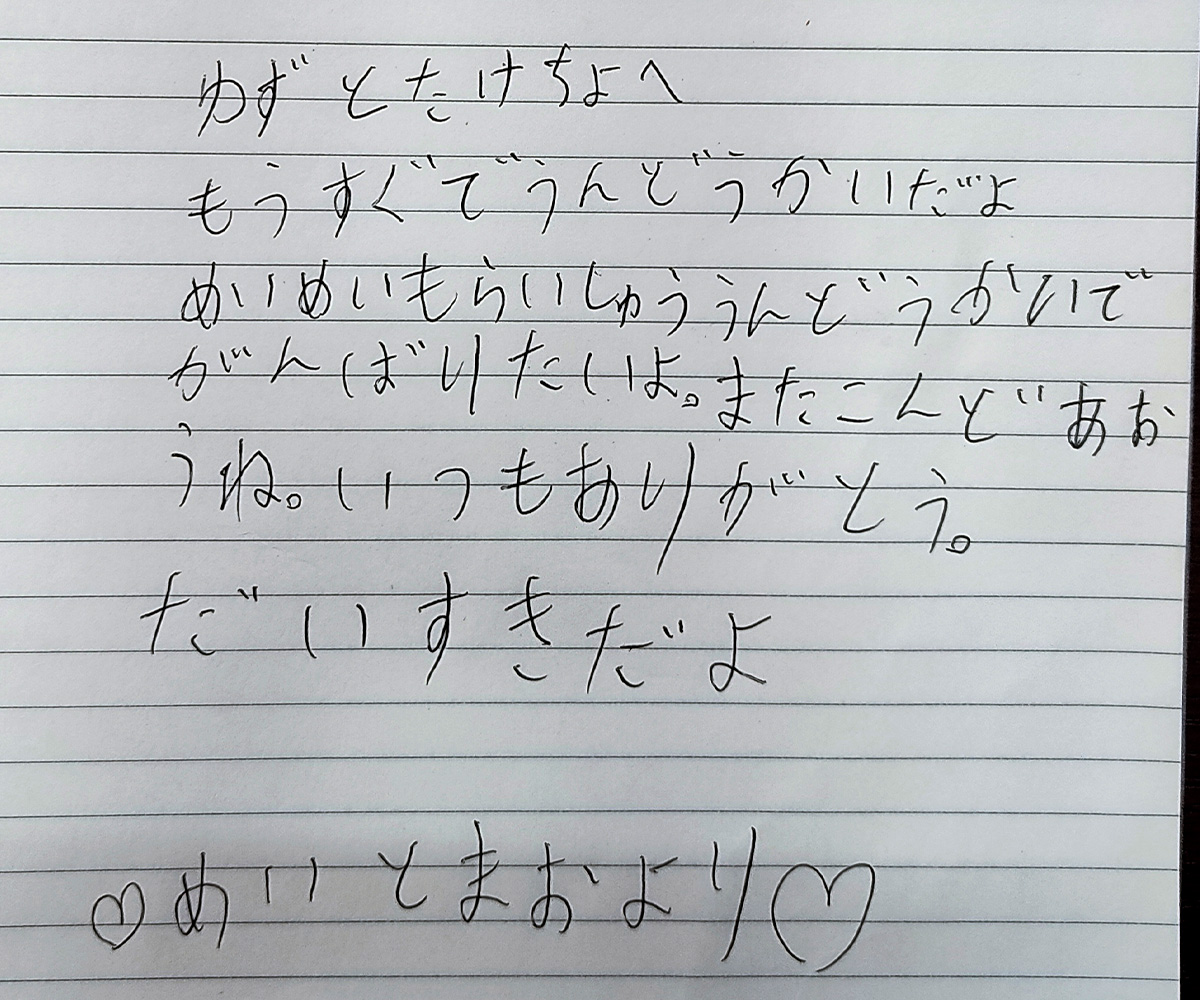 ゆずとたけちよへ
もうすぐでうんどうかいだよ
めいめいもらいしゅううんどうがいで
がんばりたいよ。またこんどあお
うね。いつもありがとう。
だいすきだよ
♡めいとまおより♡